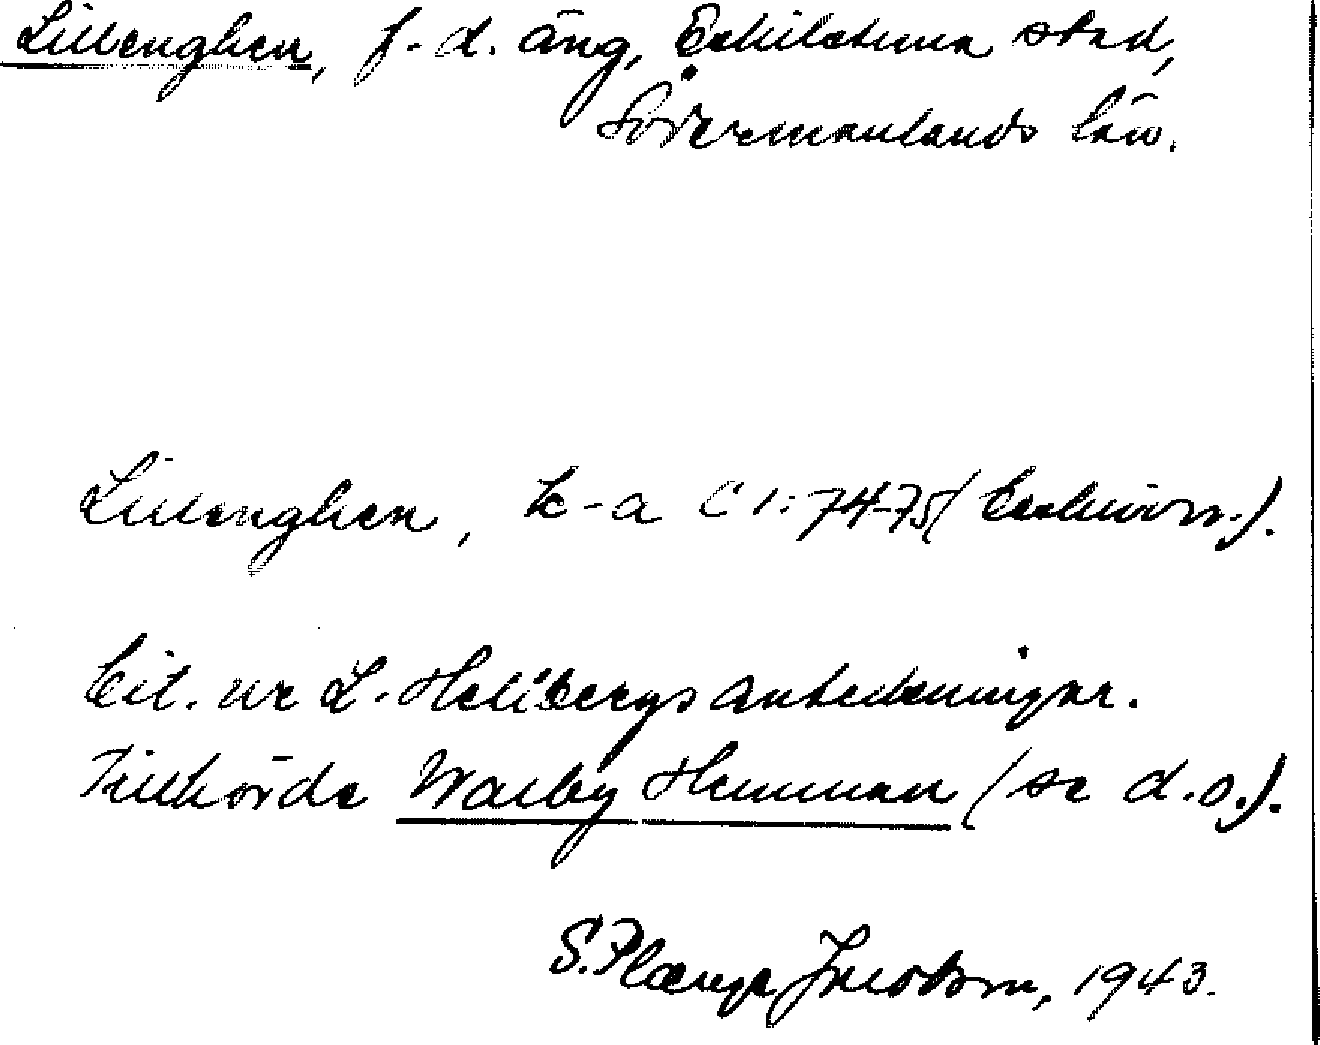 Lillenghen, f.d. äng, Eskilstuna stad,
Södermanlands län.
Lillenghen, k-a C 1:74-75 (
Cit. ur L. Hellbergs anteckningar.
Tillhörde Walby Hemman (se d.o.).
S. Jacobson, 1943.